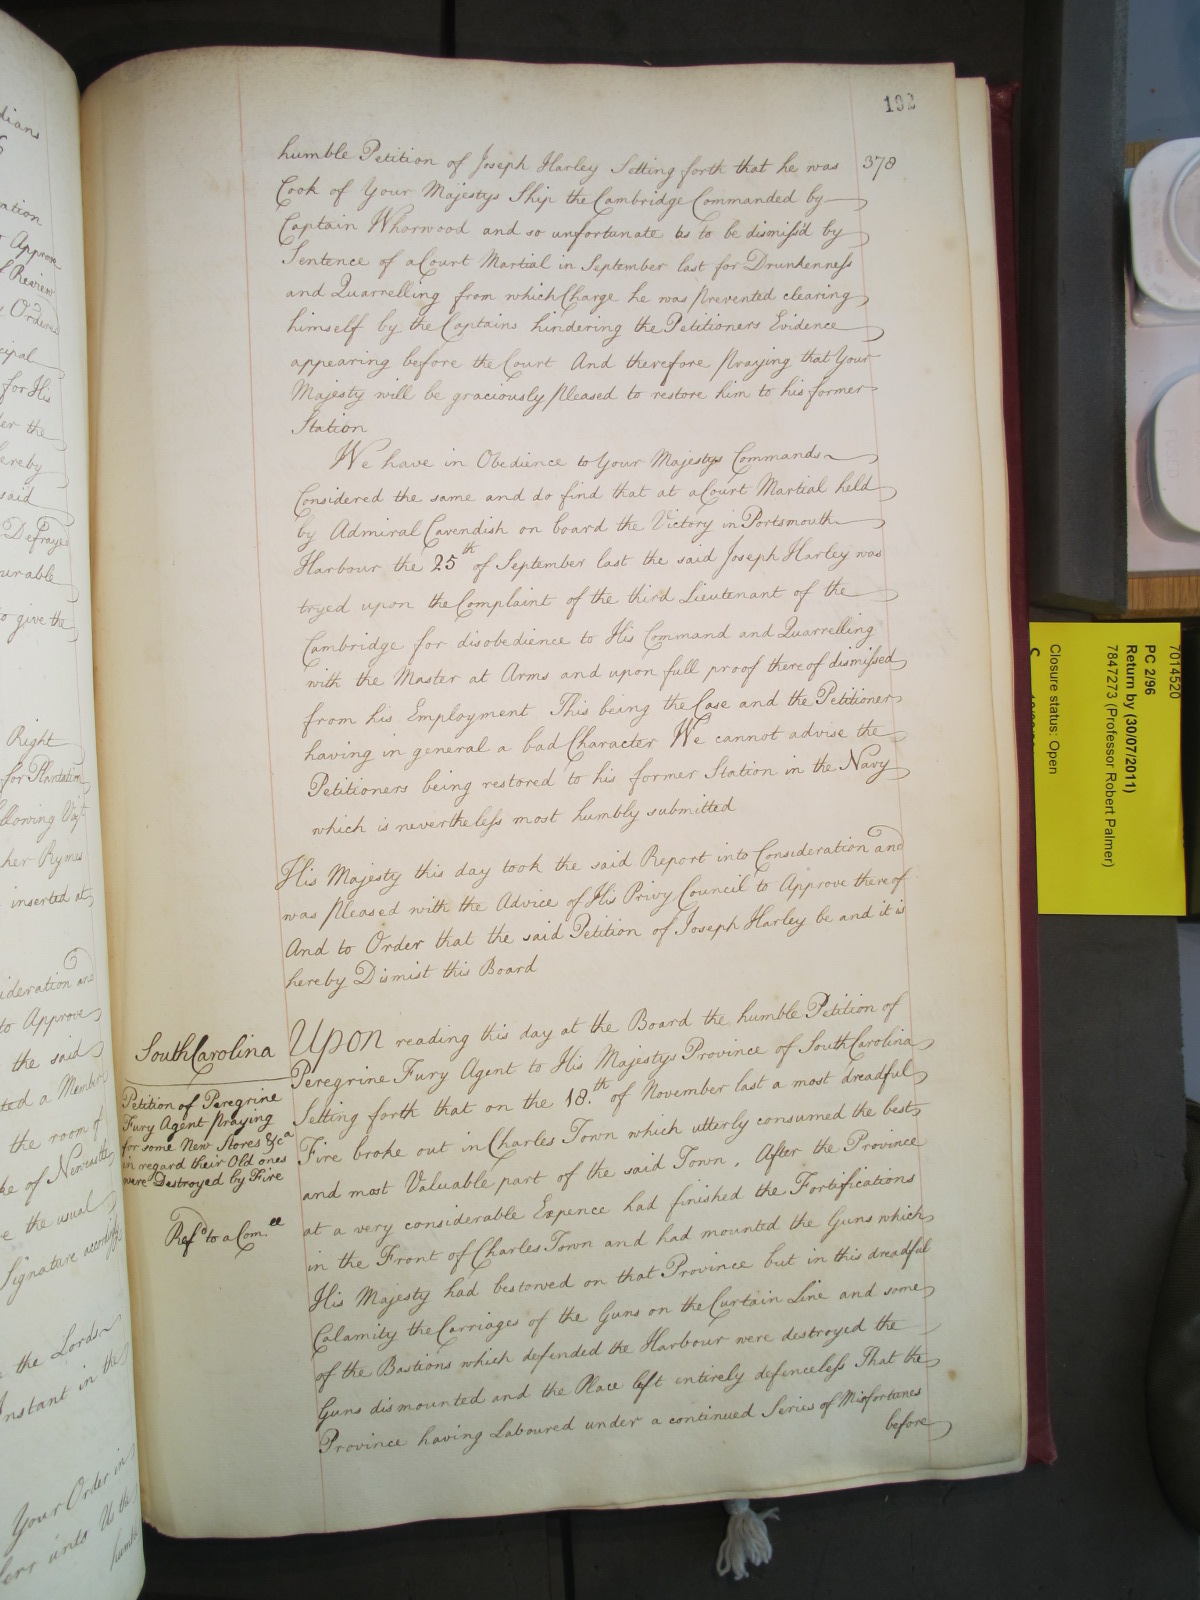 192
378
humble Petition of Joseph Harley Setting forth that he was
Cook of Your Majestys Ship the Cambridge Commanded by
Captain Whorwood and so unfortunate as to be dismiss'd by
Sentence of a Court Martial in September last for Drunkenness
and Quarrelling from which Charge he was prevented clearing
himself by the Captains hindering the Petitioners Evidence
appearing before the Court And therefore praying that Your
Majesty will be graciously pleased to restore him to his former
Station
We have in Obedience to Your Majestys Commands
Considered the same and do find that at a Court Martial held
by Admiral Cavendish on board the Victory in Portsmouth
Harbour the 25th of September last the said Joseph Harley was
tryed upon the Complaint of the third Lieutenant of the
Cambridge for disobedience to His Command and Quarrelling
with the Master at Arms and upon full proof thereof dismissed
from his Employment This being the Case and the Petitioner
having in general a bad Character We cannot advise the
Petitioners being restored to his former Station in the Navy
which is nevertheless most humbly submitted
His Majesty this day took the said Report into Consideration and
was pleased with the Advice of His Privy Council to Approve thereof
And to Order that the said Petition of Joseph Harley be and it is
hereby Dismist this Board
South Carolina
Petition of Peregrine
Fury Agent praying
for some New Stores &ca
in regard their Old ones
were Destroyed by Fire
Refd to a Comee
Upon reading this day at the Board the humble Petition of
Peregrine Fury Agent to His Majestys Province of South Carolina
Setting forth that on the 18th of November last a most dreadful
Fire broke out in Charles Town which utterly consumed the best
and most Valuable part of the said Town. After the Province
at a very considerable Expence had finished the Fortifications
in the Front of Charles Town and had mounted the Guns which
His Majesty had bestowed on that Province but in this dreadful
Calamity the Carriages of the Guns on the Curtain Line and some
of the Bastions which defended the Harbour were destroyed the
Guns dismounted and the Place left entirely defenceless That the
Province having Laboured under a continued Series of Misfortunes
before
7014520
PC 2/96
Return by (30/07/2011)
7847273 (Professor Robert Palmer)
Closure status: Open